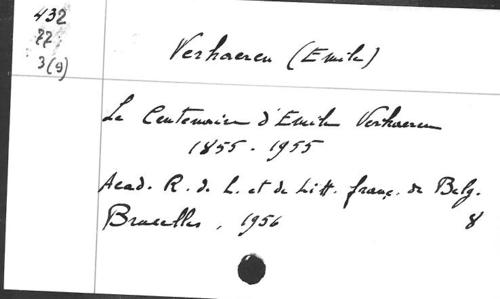 432
77
3(9)
Verhaeren (Emile)
Le Centenaire d'Emile Verhaeren
1855 - 1955
Acad. R. de L. et de Litt. franç. de Belg.
Bruxelles, 1956 8